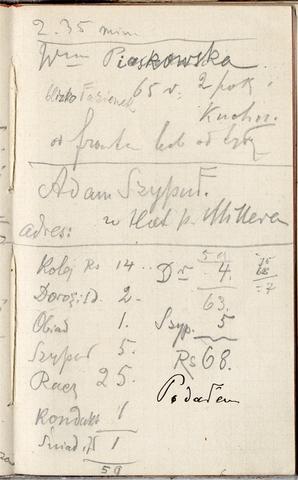 2.35 min
Wm Piaskowska
blizko Łazienek 65 r. 2 pok i
Kuchn.
od frontu lub od
Adam Szypuł.
w Hot p. Millera
adres:
Kolej Rs 14..
Doroż. 2.
Obiad 1.
Szypuł 5.
Racz 25.
Kondukt 1
Śniad. 1
59
Dr 4.
63.
Szyp. 5
Rs 68.
75
68
7
Podałem